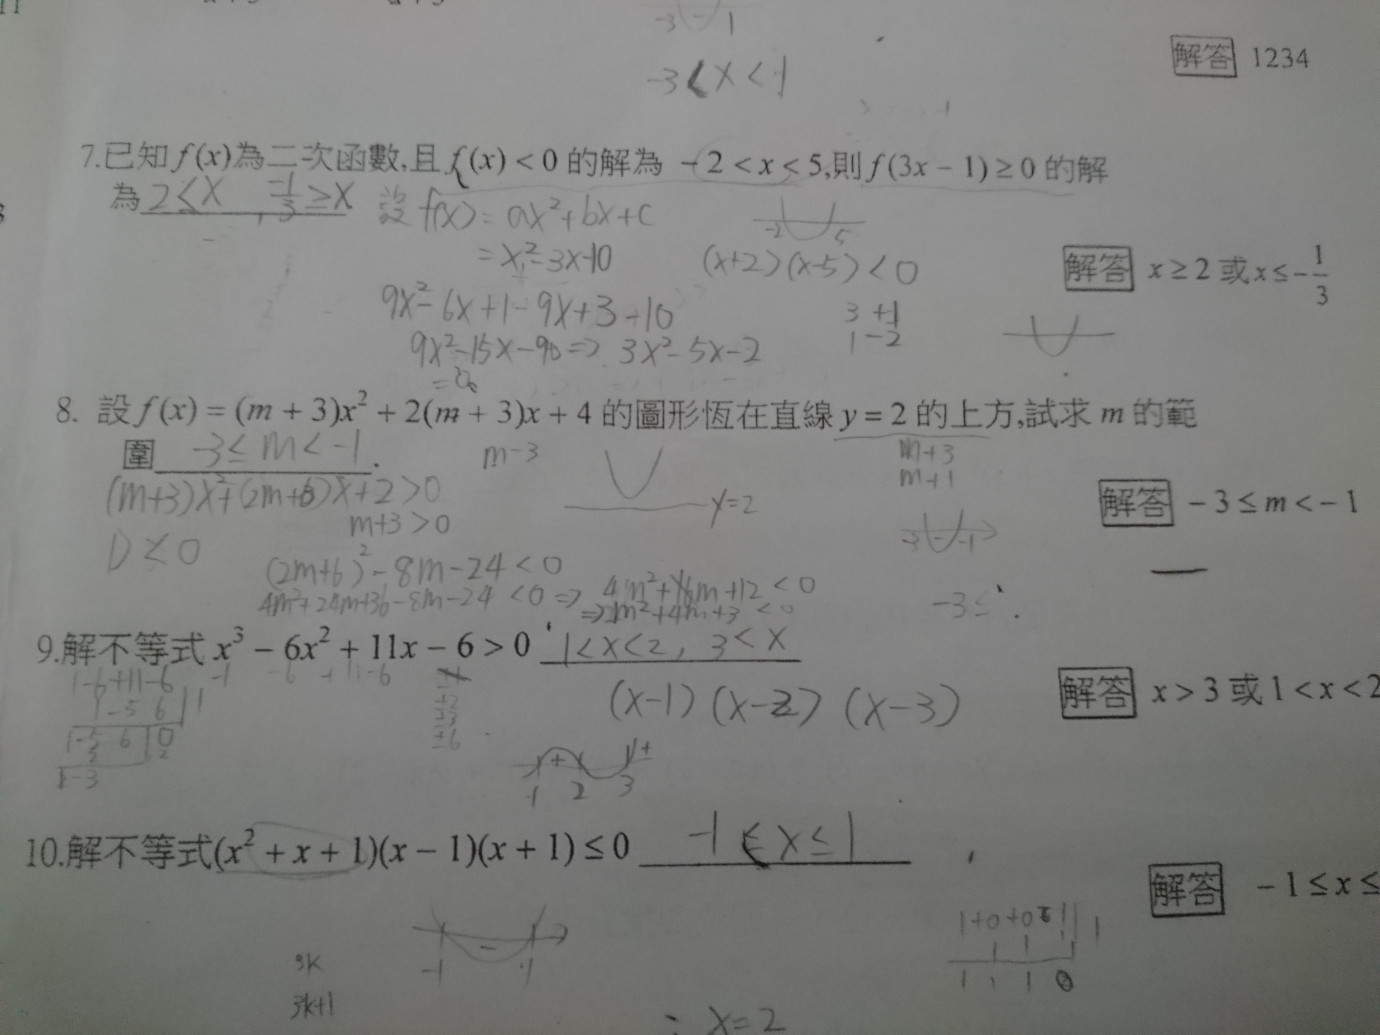 -3 -1
-3<x<-1
解答 1234
7.已知f(x)為二次函數,且f(x)<0的解為 -2<x<5,則f(3x-1)≥0的解
為 2≤x , -1/3≥x 設 f(x)=ax²+bx+c
-2 5
=x²-3x-10 (x+2)(x-5)<0
解答 x≥2或x≤-1/3
9x²-6x+1-9x+3-10
3 +1
1 -2
9x²-15x-90⇒3x²-5x-2
8. 設f(x)=(m+3)x²+2(m+3)x+4的圖形恆在直線y=2的上方,試求m的範
圍 -3≤m<-1 .
m-3
m+3
m+1
(m+3)x²+(2m+6)x+2>0
y=2
解答 -3≤m<-1
m+3>0
D<0
-3 - -1
(2m+6)²-8m-24<0
4m²+24m+36-8m-24<0⇒4m²+16m+12<0
⇒m²+4m+3<0
-3≤
9.解不等式x³-6x²+11x-6>0 1<x<2, 3<x
1-6+11-6
1-5 6 1
1-5 6 0
2
1-3
±2
±3
±6
(x-1)(x-2)(x-3)
解答 x>3或1<x<2
+ +
1 2 3
10.解不等式(x²+x+1)(x-1)(x+1)≤0 -1≤x≤1
解答 -1≤x≤
-
-1 1
1 1 1 0
3k
3k+1
x=2